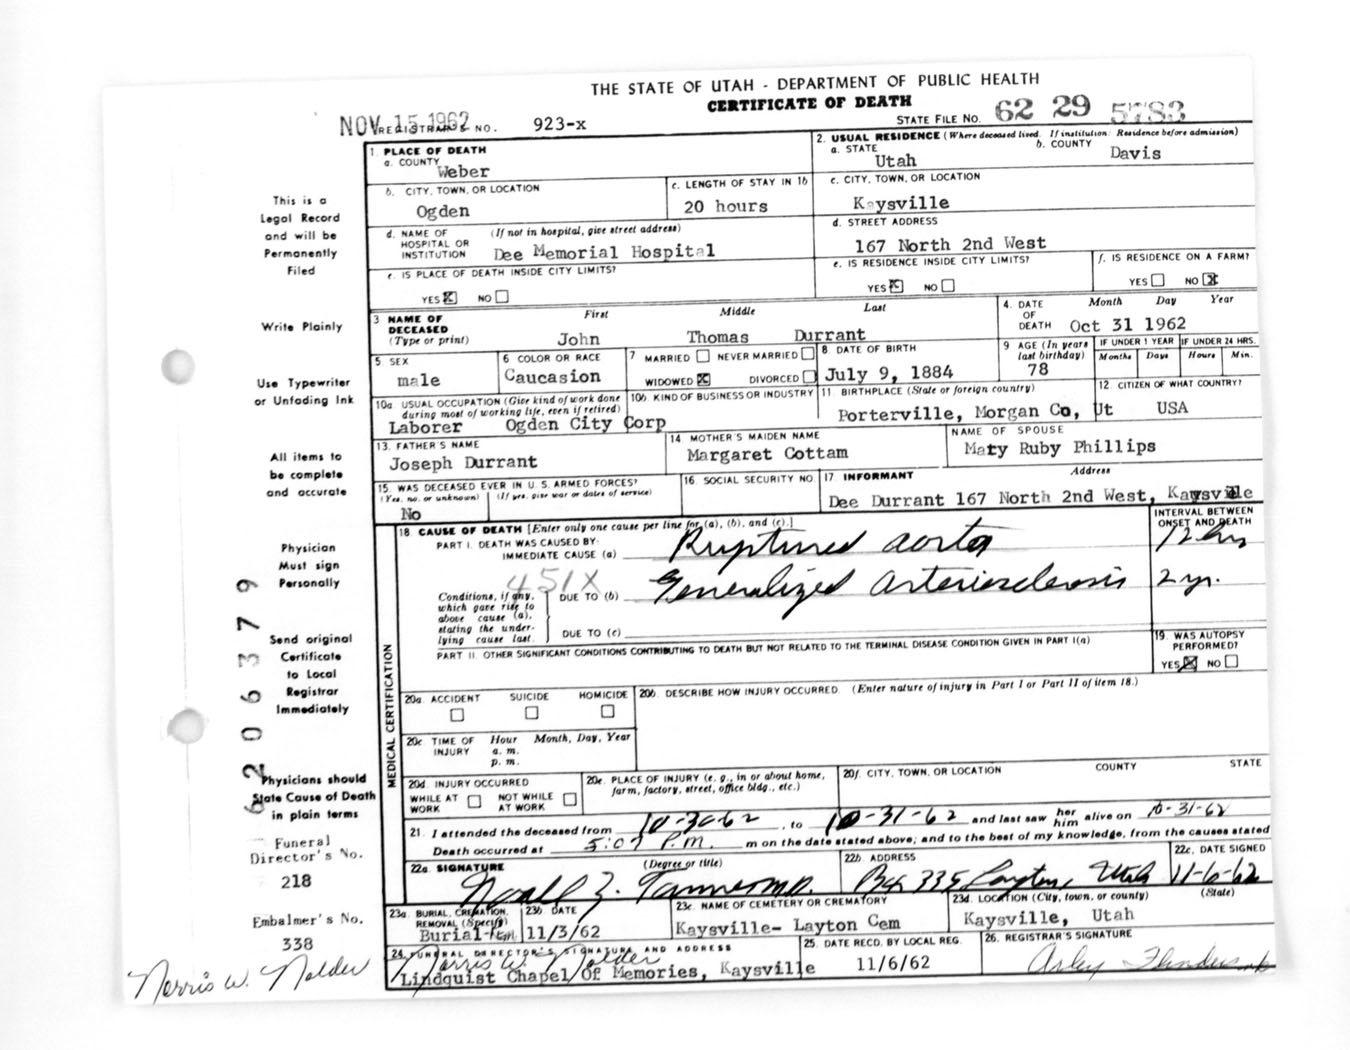 THE STATE OF UTAH - DEPARTMENT OF PUBLIC HEALTH
CERTIFICATE OF DEATH
NOV 15 1962 REGISTRAR'S NO. 923-x STATE FILE NO. 62 29 5783
1. PLACE OF DEATH
a. COUNTY
Weber
2. USUAL RESIDENCE (Where deceased lived. If institution: Residence before admission)
a. STATE Utah b. COUNTY Davis
b. CITY, TOWN, OR LOCATION
Ogden
c. LENGTH OF STAY IN 1b
20 hours
c. CITY, TOWN, OR LOCATION
Kaysville
d. NAME OF HOSPITAL OR INSTITUTION (If not in hospital, give street address)
Dee Memorial Hospital
d. STREET ADDRESS
167 North 2nd West
e. IS PLACE OF DEATH INSIDE CITY LIMITS?
YES X NO
e. IS RESIDENCE INSIDE CITY LIMITS?
YES X NO
f. IS RESIDENCE ON A FARM?
YES NO X
3 NAME OF DECEASED (Type or print)
First Middle Last
John Thomas Durrant
4. DATE OF DEATH Month Day Year
Oct 31 1962
5. SEX
male
6 COLOR OR RACE
Caucasion
7 MARRIED NEVER MARRIED
WIDOWED X DIVORCED
8 DATE OF BIRTH
July 9, 1884
9 AGE (In years last birthday)
78
IF UNDER 1 YEAR IF UNDER 24 HRS.
Months Days Hours Min.
10a. USUAL OCCUPATION (Give kind of work done during most of working life, even if retired)
Laborer
10b. KIND OF BUSINESS OR INDUSTRY
Ogden City Corp
11 BIRTHPLACE (State or foreign country)
Porterville, Morgan Co, Ut
12. CITIZEN OF WHAT COUNTRY?
USA
13. FATHER'S NAME
Joseph Durrant
14 MOTHER'S MAIDEN NAME
Margaret Cottam
NAME OF SPOUSE
Maty Ruby Phillips
15. WAS DECEASED EVER IN U. S. ARMED FORCES?
(Yes, no, or unknown) (If yes, give war or dates of service)
No
16. SOCIAL SECURITY NO.
17 INFORMANT Address
Dee Durrant 167 North 2nd West, Kaysville
18 CAUSE OF DEATH [Enter only one cause per line for (a), (b), and (c).]
INTERVAL BETWEEN ONSET AND DEATH
PART I. DEATH WAS CAUSED BY:
IMMEDIATE CAUSE (a) Ruptured aorta 12 hrs
451X
Conditions, if any, which gave rise to above cause (a), stating the underlying cause last.
DUE TO (b) Generalized arteriosclerosis 2 yr.
DUE TO (c)
PART II. OTHER SIGNIFICANT CONDITIONS CONTRIBUTING TO DEATH BUT NOT RELATED TO THE TERMINAL DISEASE CONDITION GIVEN IN PART I(a)
19. WAS AUTOPSY PERFORMED?
YES X NO
20a. ACCIDENT SUICIDE HOMICIDE
20b. DESCRIBE HOW INJURY OCCURRED. (Enter nature of injury in Part I or Part II of item 18.)
20c. TIME OF INJURY Hour Month, Day, Year
a. m.
p. m.
20d. INJURY OCCURRED
WHILE AT WORK NOT WHILE AT WORK
20e. PLACE OF INJURY (e. g., in or about home, farm, factory, street, office bldg., etc.)
20f. CITY, TOWN, OR LOCATION COUNTY STATE
21. I attended the deceased from 10-30-62, to 10-31-62 and last saw her him alive on 10-31-62
Death occurred at 5:07 P.M. m on the date stated above; and to the best of my knowledge, from the causes stated
22a. SIGNATURE (Degree or title)
Noall Z. Tanner M.D.
22b. ADDRESS
Bx 335 Layton, Utah
22c. DATE SIGNED
11-6-62
23a. BURIAL, CREMATION, REMOVAL (Specify)
Burial-Rem
23b DATE
11/3/62
23c. NAME OF CEMETERY OR CREMATORY
Kaysville- Layton Cem
23d. LOCATION (City, town, or county) (State)
Kaysville, Utah
24. FUNERAL DIRECTOR'S SIGNATURE AND ADDRESS
Norris W. Nalder
Lindquist Chapel Of Memories, Kaysville
25. DATE RECD. BY LOCAL REG.
11/6/62
26. REGISTRAR'S SIGNATURE
MEDICAL CERTIFICATION
This is a
Legal Record
and will be
Permanently
Filed
Write Plainly
Use Typewriter
or Unfading Ink
All items to
be complete
and accurate
Physician
Must sign
Personally
Send original
Certificate
to Local
Registrar
Immediately
Physicians should
State Cause of Death
in plain terms
6206379
Funeral
Director's No.
218
Embalmer's No.
338
Norris W. Nalder